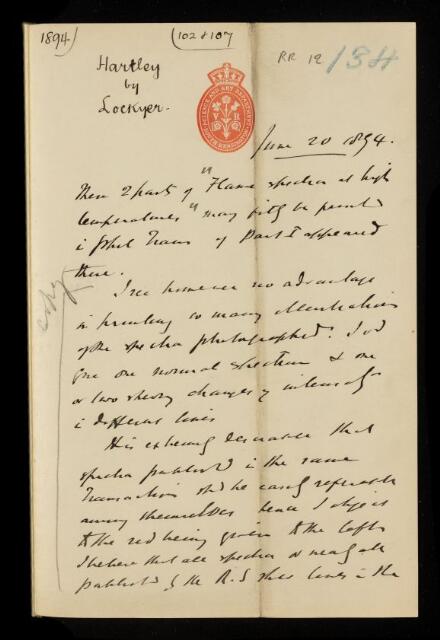 1894)
(102 & 107
RR 12
134
Hartley
by
Lockyer.
SCIENCE AND ART DEPARTMENT
June 20 1894.
These 2 parts of "Flame spectra at high
temperatures" may be
i Phil Trans if Part I appeared
there.
copy
I see however no advantage
in printing so many illustrations
of the spectra photographed. I d
give one normal spectrum & one
or two showing changes of intensity
i different lines
It is extremely desirable that
spectra published in the same
Transactions shd be easily referable
among themselves hence I object
to the red being given to the left
I believe that all spectra or nearly all
published by the R.S. lines in the